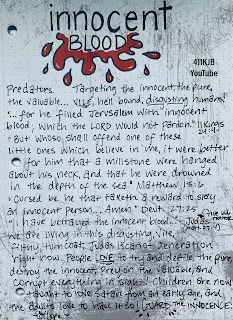 innocent
BLOOD
411KJB
YouTube
Predators. Targeting the innocent, the pure,
the valuable... VILE, hell bound, disgusting humans!
"... for he filled Jerusalem with innocent
blood; which the LORD would not pardon." II Kings
24:4
"But whoso shall offend one of these
little ones which believe in me, it were better
for him that a millstone were hanged
about his neck, and that he were drowned
in the depth of the sea." Matthew 18:6
"Cursed be he that taketh a reward to slay
an innocent person... Amen." Deut. 27:25
"I have betrayed the innocent blood." Judas
Matt. 27:4
we are living in this disgusting, vile,
filthy, turn coat, Judas Iscariot Generation
right now. People LOVE to try and defile the pure,
destroy the innocent, Prey on the valuable, and
corrupt everything in sight!! Children are now
taught to love Satan from an early age, and
the adults love to have it so! GUARD THE INNOCENCE